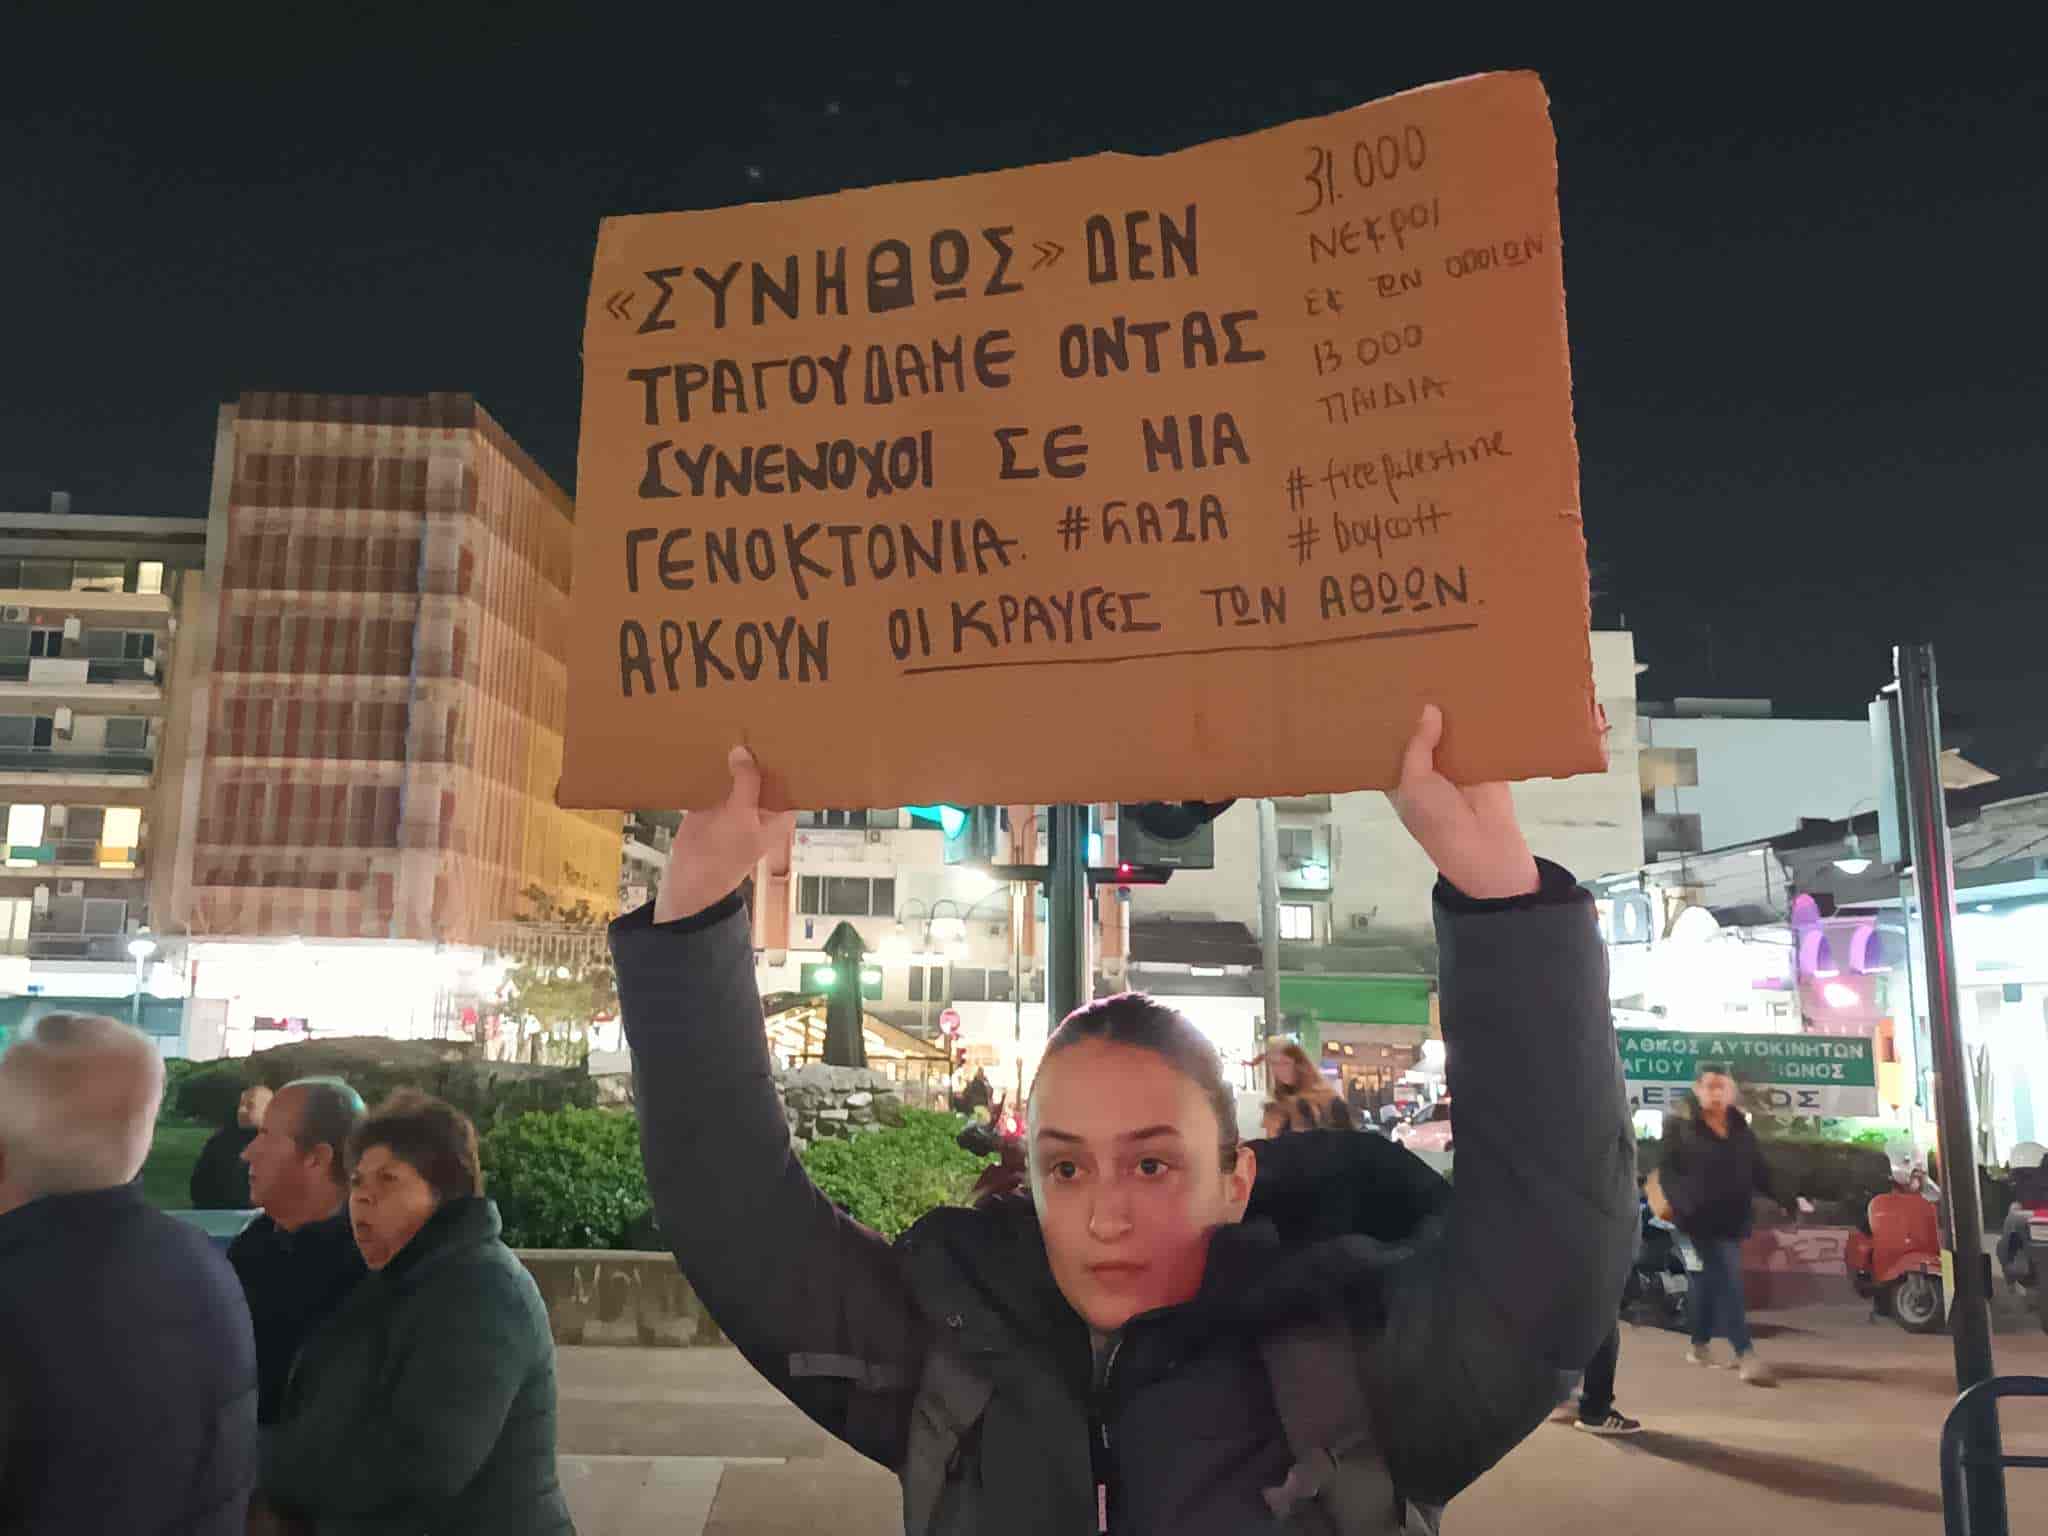 «ΣΥΝΗΘΩΣ» ΔΕΝ
ΤΡΑΓΟΥΔΑΜΕ ΟΝΤΑΣ
ΣΥΝΕΝΟΧΟΙ ΣΕ ΜΙΑ
ΓΕΝΟΚΤΟΝΙΑ. #GAZA
ΑΡΚΟΥΝ ΟΙ ΚΡΑΥΓΕΣ ΤΩΝ ΑΘΩΩΝ.
31.000
ΝΕΚΡΟΙ
ΕΚ ΤΩΝ ΟΠΟΙΩΝ
13.000
ΠΑΙΔΙΑ
#freepalestine
#boycott
ΑΥΤΟΚΙΝΗΤΩΝ
ΑΓΙΟΥ